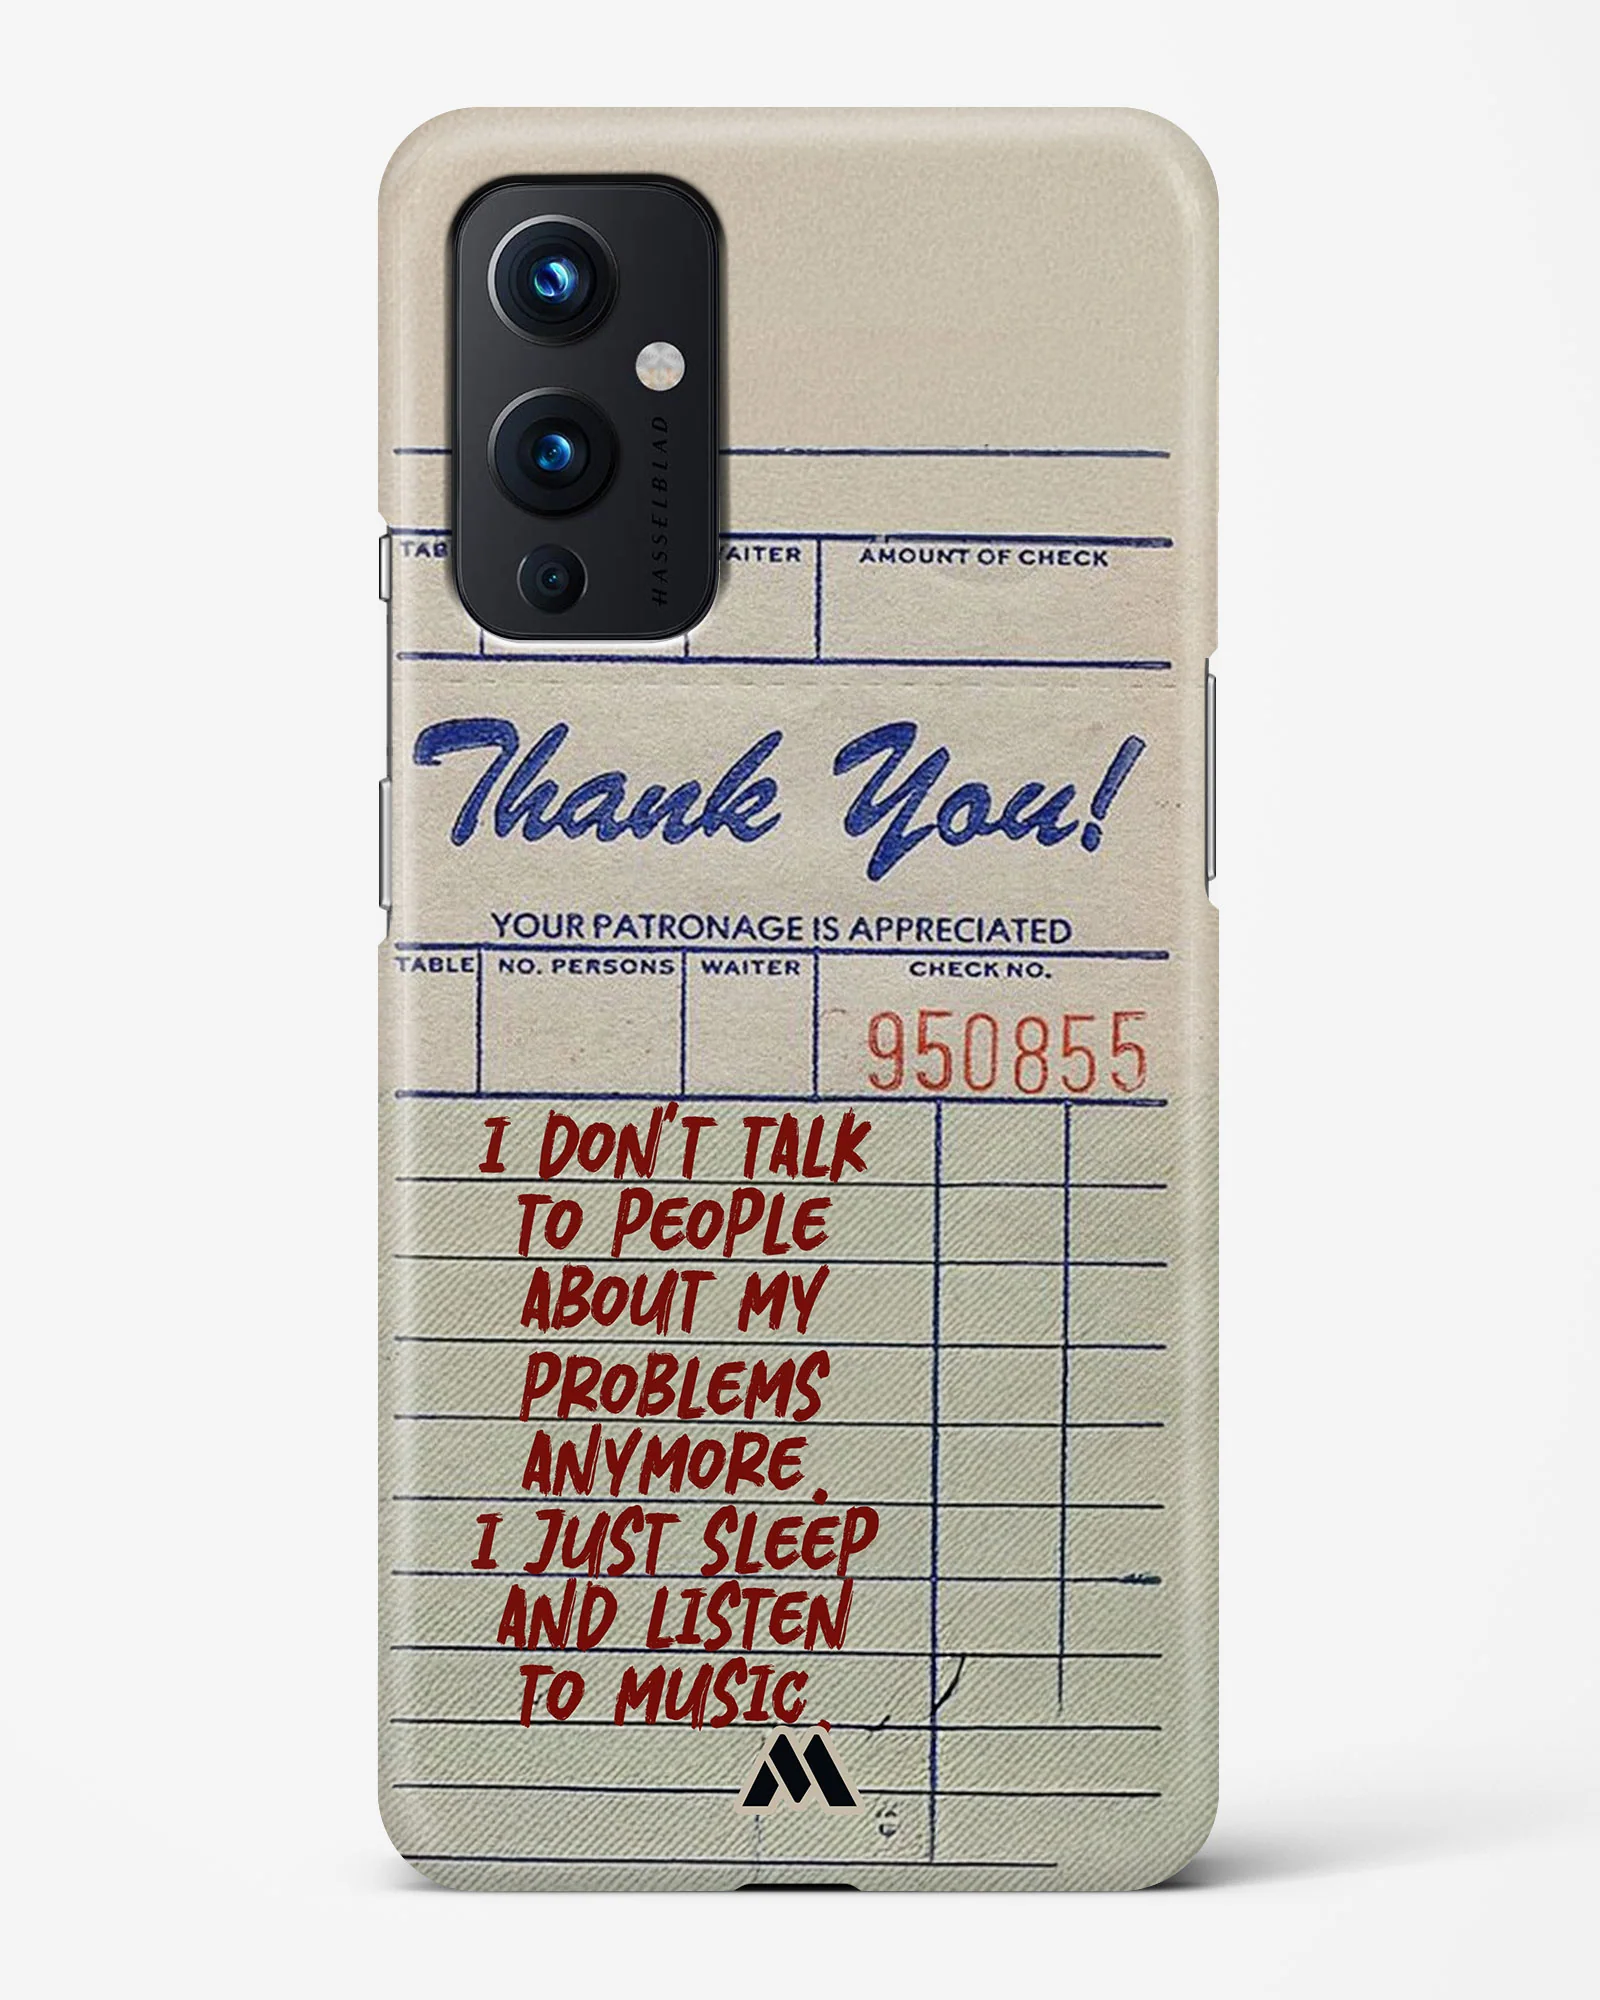 HASSELBLAD
AMOUNT OF CHECK
Thank You!
YOUR PATRONAGE IS APPRECIATED
TABLE NO. PERSONS WAITER CHECK NO.
950855
I DON'T TALK
TO PEOPLE
ABOUT MY
PROBLEMS
ANYMORE.
I JUST SLEEP
AND LISTEN
TO MUSIC.